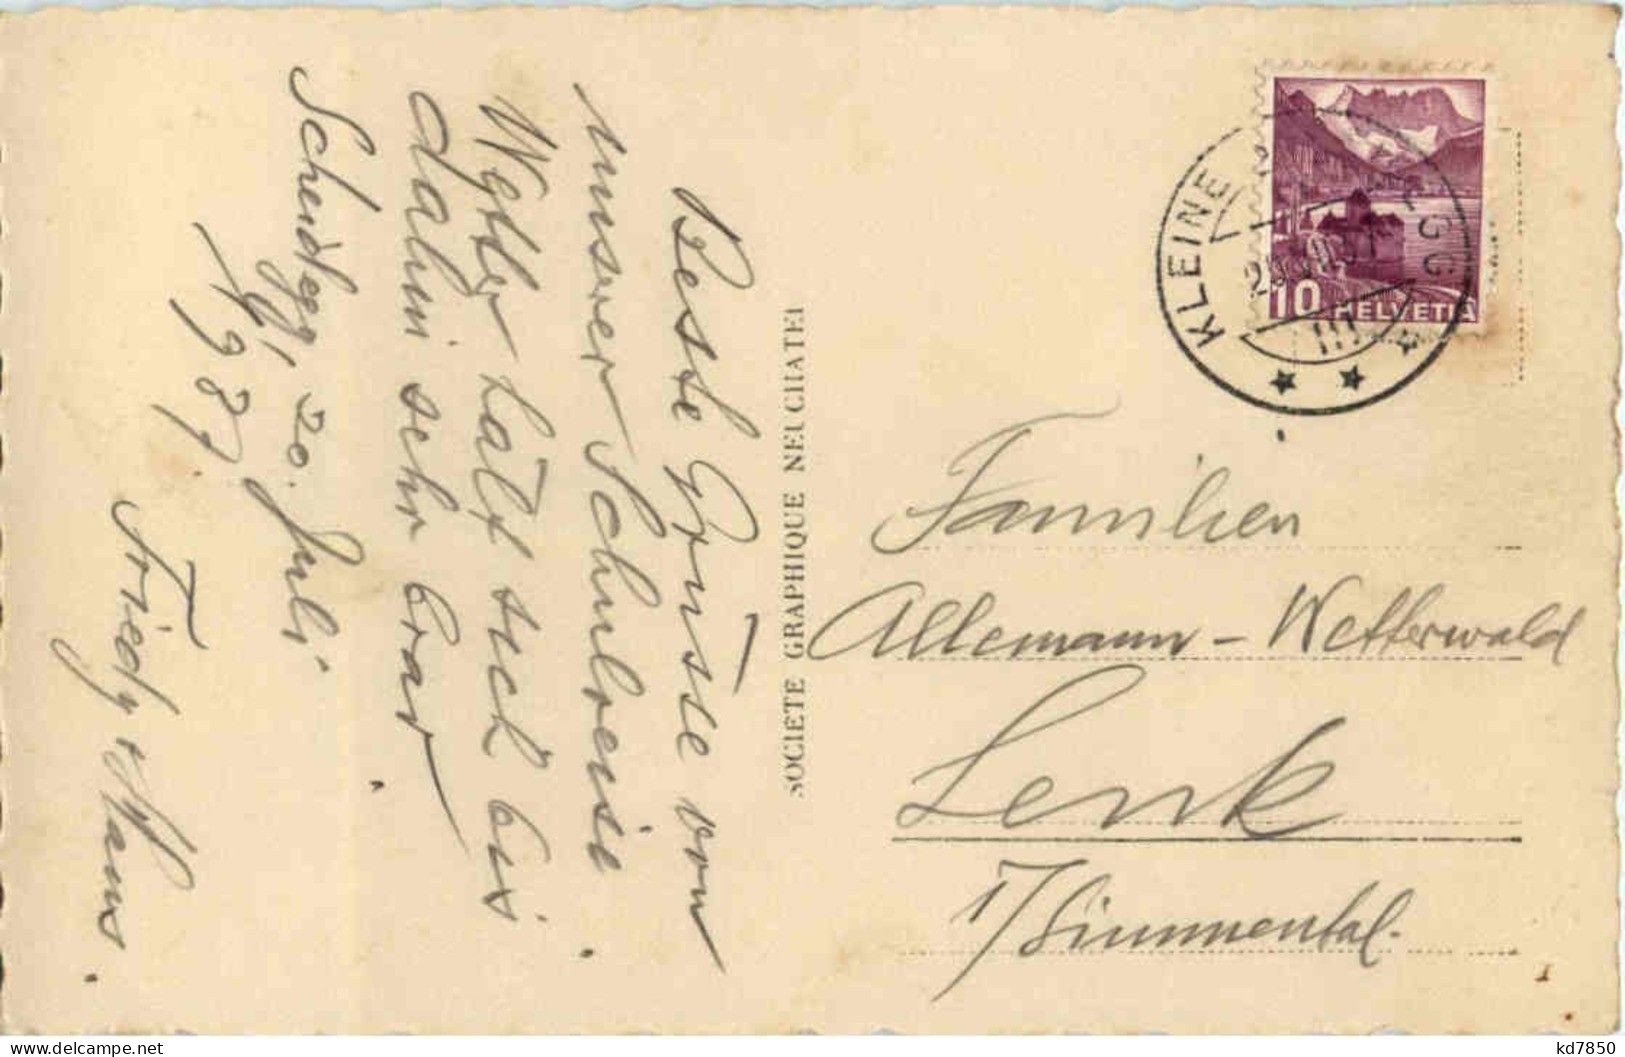 Beste Grüsse von
unserer Schulreise.
Wetter hält sich bis
dahin sehr brav.
Scheidegg, 20. Juli
1937.
Friedy + Hans.
SOCIÉTÉ GRAPHIQUE NEUCHATEL
KLEINE
10 HELVETIA
Familien
Allemann-Wetterwald
Lenk
i/Simmental.
delcampe.net
kd7850